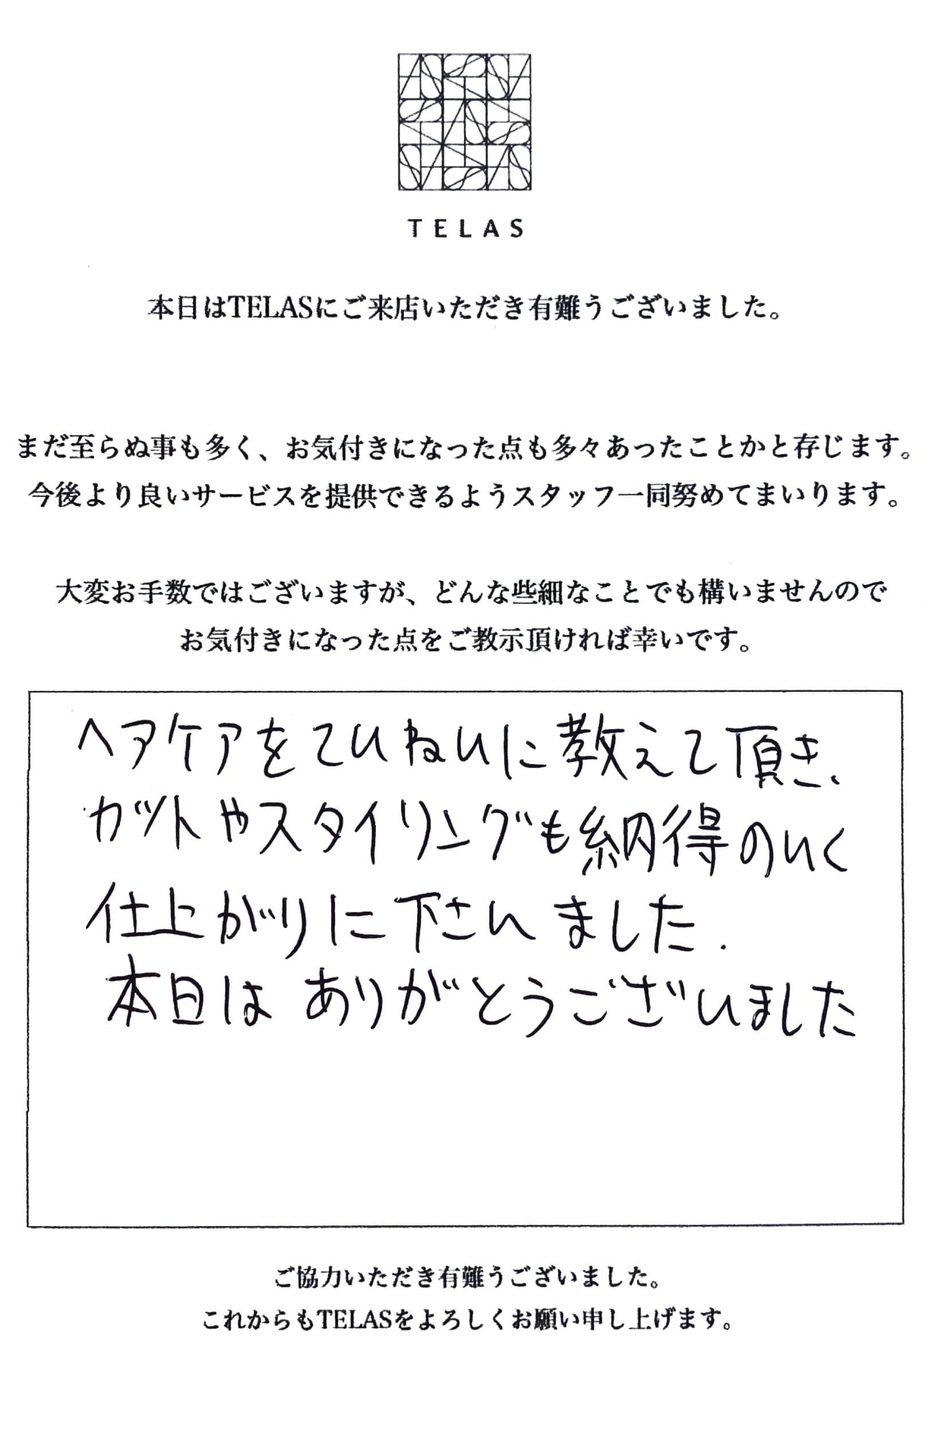 TELAS
本日はTELASにご来店いただき有難うございました。
まだ至らぬ事も多く、お気付きになった点も多々あったことかと存じます。
今後より良いサービスを提供できるようスタッフ一同努めてまいります。
大変お手数ではございますが、どんな些細なことでも構いませんので
お気付きになった点をご教示頂ければ幸いです。
ヘアケアをていねいに教えて頂き、
カットやスタイリングも納得のいく
仕上がりに下さいました.
本日は ありがとうございました
ご協力いただき有難うございました。
これからもTELASをよろしくお願い申し上げます。